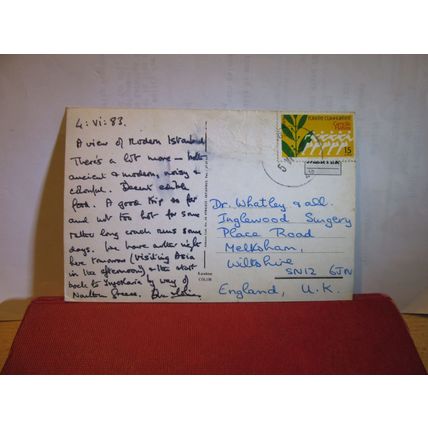 4: vi: 83.
A view of Modern Istanbul
There's a lot more – both
ancient & modern, noisy &
colorful. Decent edible
food. A good trip so far
and not too hot for some
rather long coach runs some
days. We have another night
here tomorrow (visiting Asia
in the afternoon) & then start
back to Yugoslavia by way of
Northern Greece.
TÜRKİYE CUMHURİYETİ
15
Dr. Whatley & all.
Inglewood Surgery
Place Road
Melksham,
Wiltshire
SN12 6JN
England, U.K.
COLOR